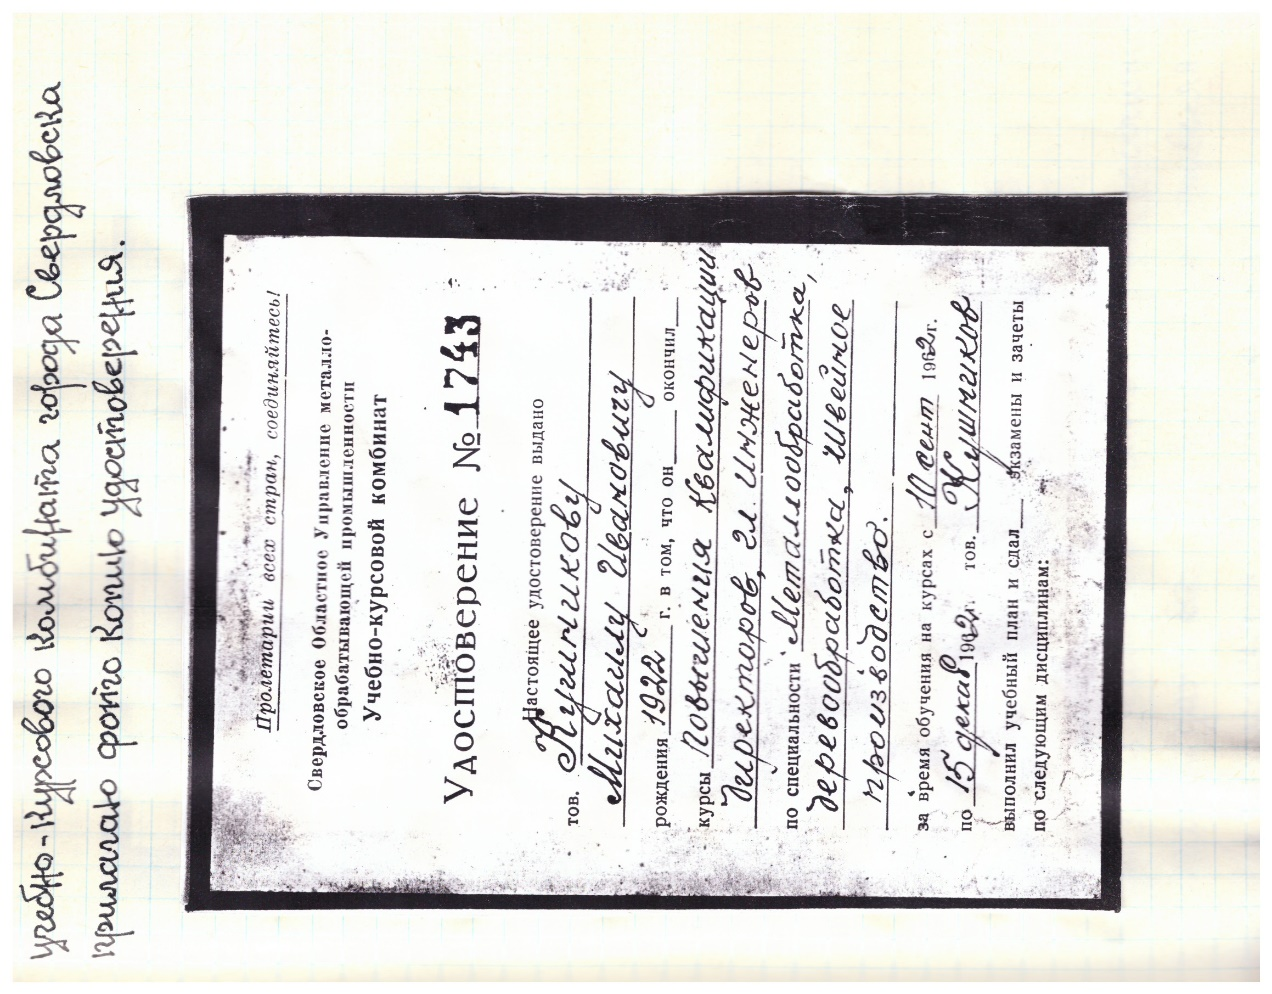 учебно-Курсового Комбината города Свердловска
прилагаю фото Копию удостоверения.
Пролетарии всех стран, соединяйтесь!
Свердловское Областное Управление металло-
обрабатывающей промышленности
Учебно-курсовой комбинат
Удостоверение № 1743
Настоящее удостоверение выдано
тов. Кушникову
Михаилу Ивановичу
рождения 1922 г. в том, что он окончил
курсы Повышения Квалификации
Директоров, гл. Инженеров
по специальности Металлообработка,
деревообработка, швейное
производство.
за время обучения на курсах с 10 сент 1962г.
по 15 декаб 1962г. тов. Кушников
выполнил учебный план и сдал экзамены и зачеты
по следующим дисциплинам: